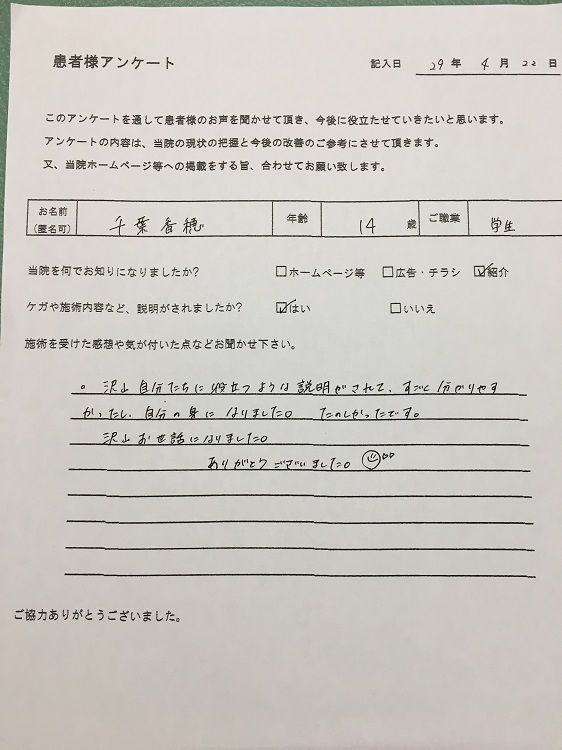 患者様アンケート
記入日 29年 4月 22日
このアンケートを通して患者様のお声を聞かせて頂き、今後に役立たせていきたいと思います。
アンケートの内容は、当院の現状の把握と今後の改善のご参考にさせて頂きます。
又、当院ホームページ等への掲載をする旨、合わせてお願い致します。
お名前(匿名可) 千葉香穂 年齢 14歳 ご職業 学生
当院を何でお知りになりましたか? □ホームページ等 □広告・チラシ ☑紹介
ケガや施術内容など、説明がされましたか? ☑はい □いいえ
施術を受けた感想や気が付いた点などお聞かせ下さい。
。沢山自分たちに役立つような説明がされて、すごく分かりやす
かったし、自分の身になりました。たのしかったです。
沢山お世話になりました。
ありがとうございました。
ご協力ありがとうございました。